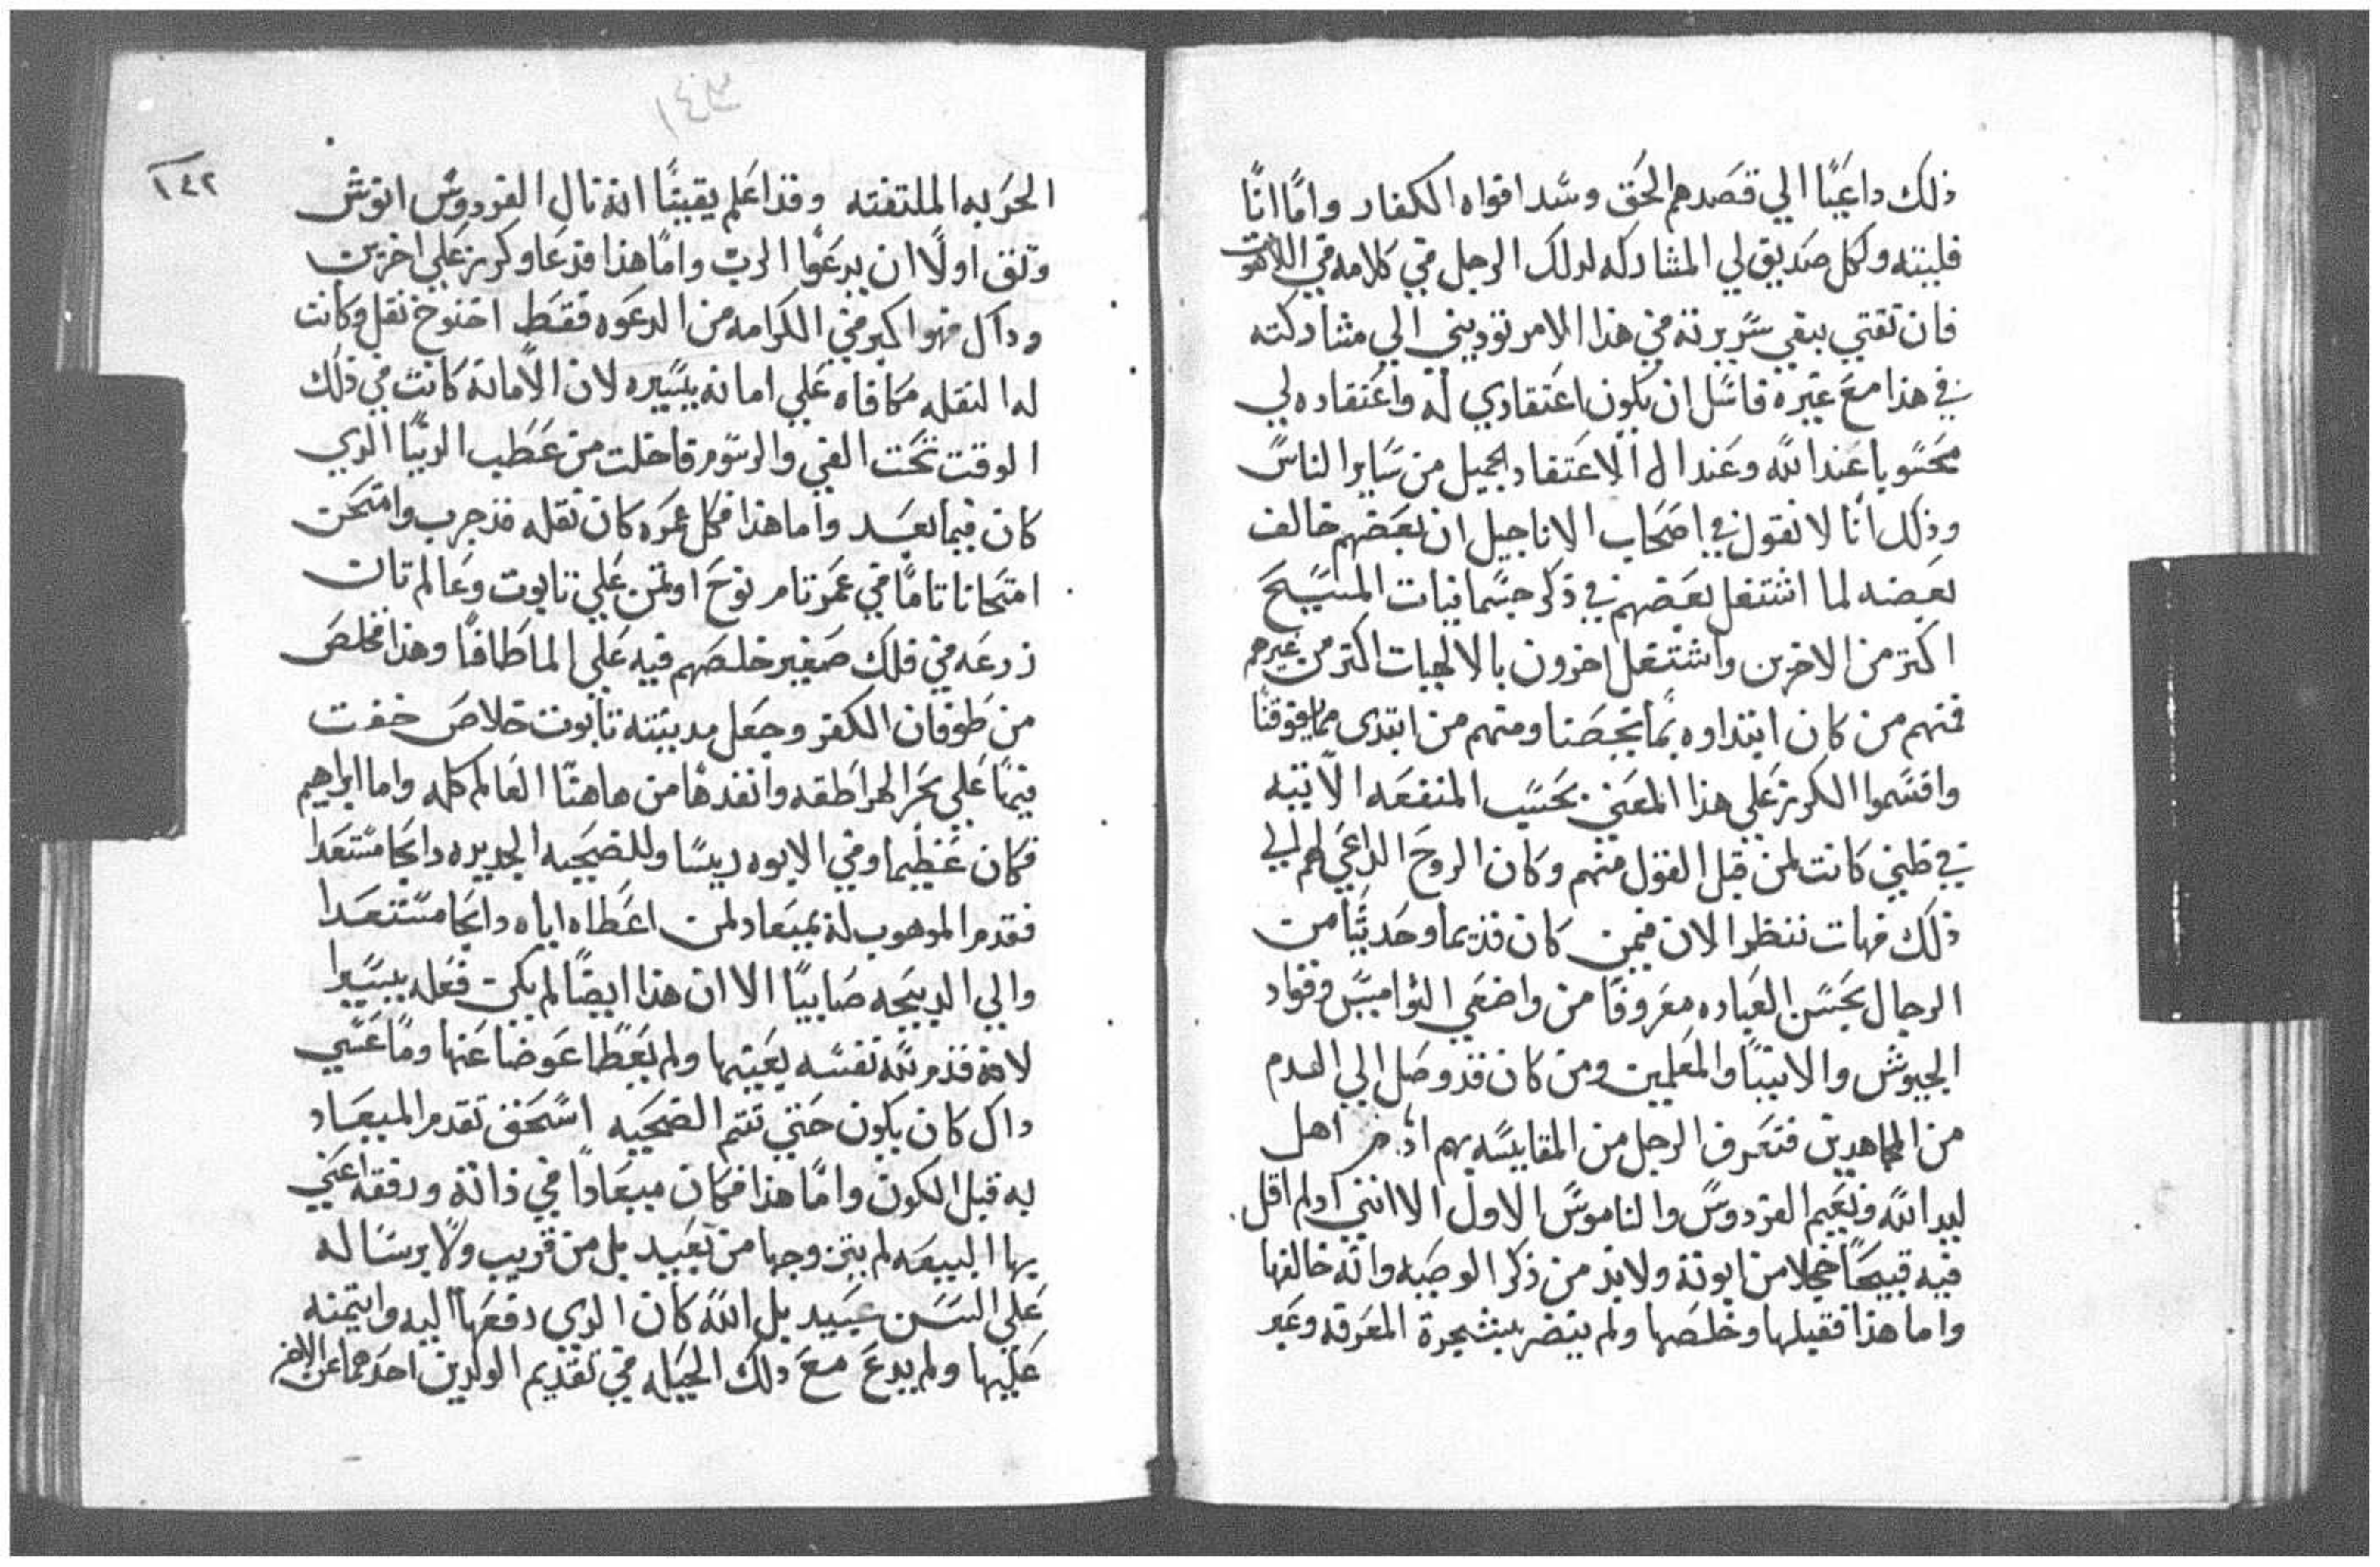 ذلك داعيًا الي قصدهم الحق وسد افواه الكفار واما انا
فليته وكل صديق لي المشاركه لدلك الرجل في كلامه في اللاهوت
فان ثقتي بنقي سريرته في هذا الامر توديني الي مشاركته
في هذا مع غيره فاسل ان يكون اعتقادي له واعتقاده لي
محسوبا عند الله وعند اله الاعتقاد الجميل من ساير الناس
وذلك انا لا نقول في اصحاب الاناجيل ان بعضهم خالف
بعضه لما اشتغل بعضهم في ذكر جسمانيات المسيح
اكتر من الاخرين واشتغل اخرون بالالهيات اكتر من غيرهم
فمنهم من كان ابتداوه بما يخصنا ومنهم من ابتدي مما يفوقنا
واقسموا الكرز علي هذا المعني بحسب المنفعه الاتيه
في ظني كانت لمن قبل القول منهم وكان الروح الداعي لهم الي
ذلك فهات ننظر الان فيمن كان قديما وحديثا من
الرجال بحسن العباده معروفا من واضعي النواميس وقواد
الجيوش والانبيا والمعلمين ومن كان قد وصل الي الدم
من المجاهدين فنعرف الرجل من المقايسه بهم ادم اهل
ليد الله ونعيم الفردوس والناموس الاول الا انني ادلم اقل
فيه قبيحا خجلا من ابوته ولابد من ذكر الوصيه وانه خالفها
واما هذا فقبلها وخلصها ولم يتضر بشجرة المعرفه وعبر
١٤٣
١٤٢
الحربه الملتفته وقد اعلم يقينًا انه نال الفردوس انوش
وثق اولا ان يدعوا الرب واما هذا فدعا وكرز علي اخرين
وداك فهو اكبر في الكرامه من الدعوه فقط اخنوخ نقل وكانت
له النقله مكافاه علي امانه يسيره لان الامانه كانت في ذلك
الوقت تحت الفي والرسوم فاخلت من عطب الدنيا الدي
كان فيما بعد واما هذا فكل عمره كان نقله قد جرب وامتحن
امتحانا تاما في عمر تام نوح اوتمن علي تابوت وعالم تان
زرعه في فلك صغير خلصهم فيه علي الما طافيا وهذا فخلص
من طوفان الكفر وجعل مدينته تابوت خلاص خفت
فيها علي بحر الهراطقه وانقدها من هاهنا العالم كله واما ابراهيم
فكان عظيما وفي الابوه ريسا وللضحيه الجديده دابحا مستعدا
فقدم الموهوب له بميعاد لمن اعطاه اياه دابحا مستعدا
والي الدبيحه صابيا الا ان هذا ايضا لم يكن فعله يسيرا
لانه قدم لله نفسه بعينها ولم يعطا عوضا عنها وما عسي
داك كان يكون حتي تتم الضحيه اسحق تقدم الميعاد
به قبل الكون واما هذا فكان ميعادا في ذاته ورفقه اعني
بها البيعه لم يتزوجها من بعيد بل من قريب ولا برساله
علي السن عبيد بل الله كان الدي دفعها اليه وايتمنه
عليها ولم يدع مع دلك الحيله في تقديم الولدين احدهما عن الاخر